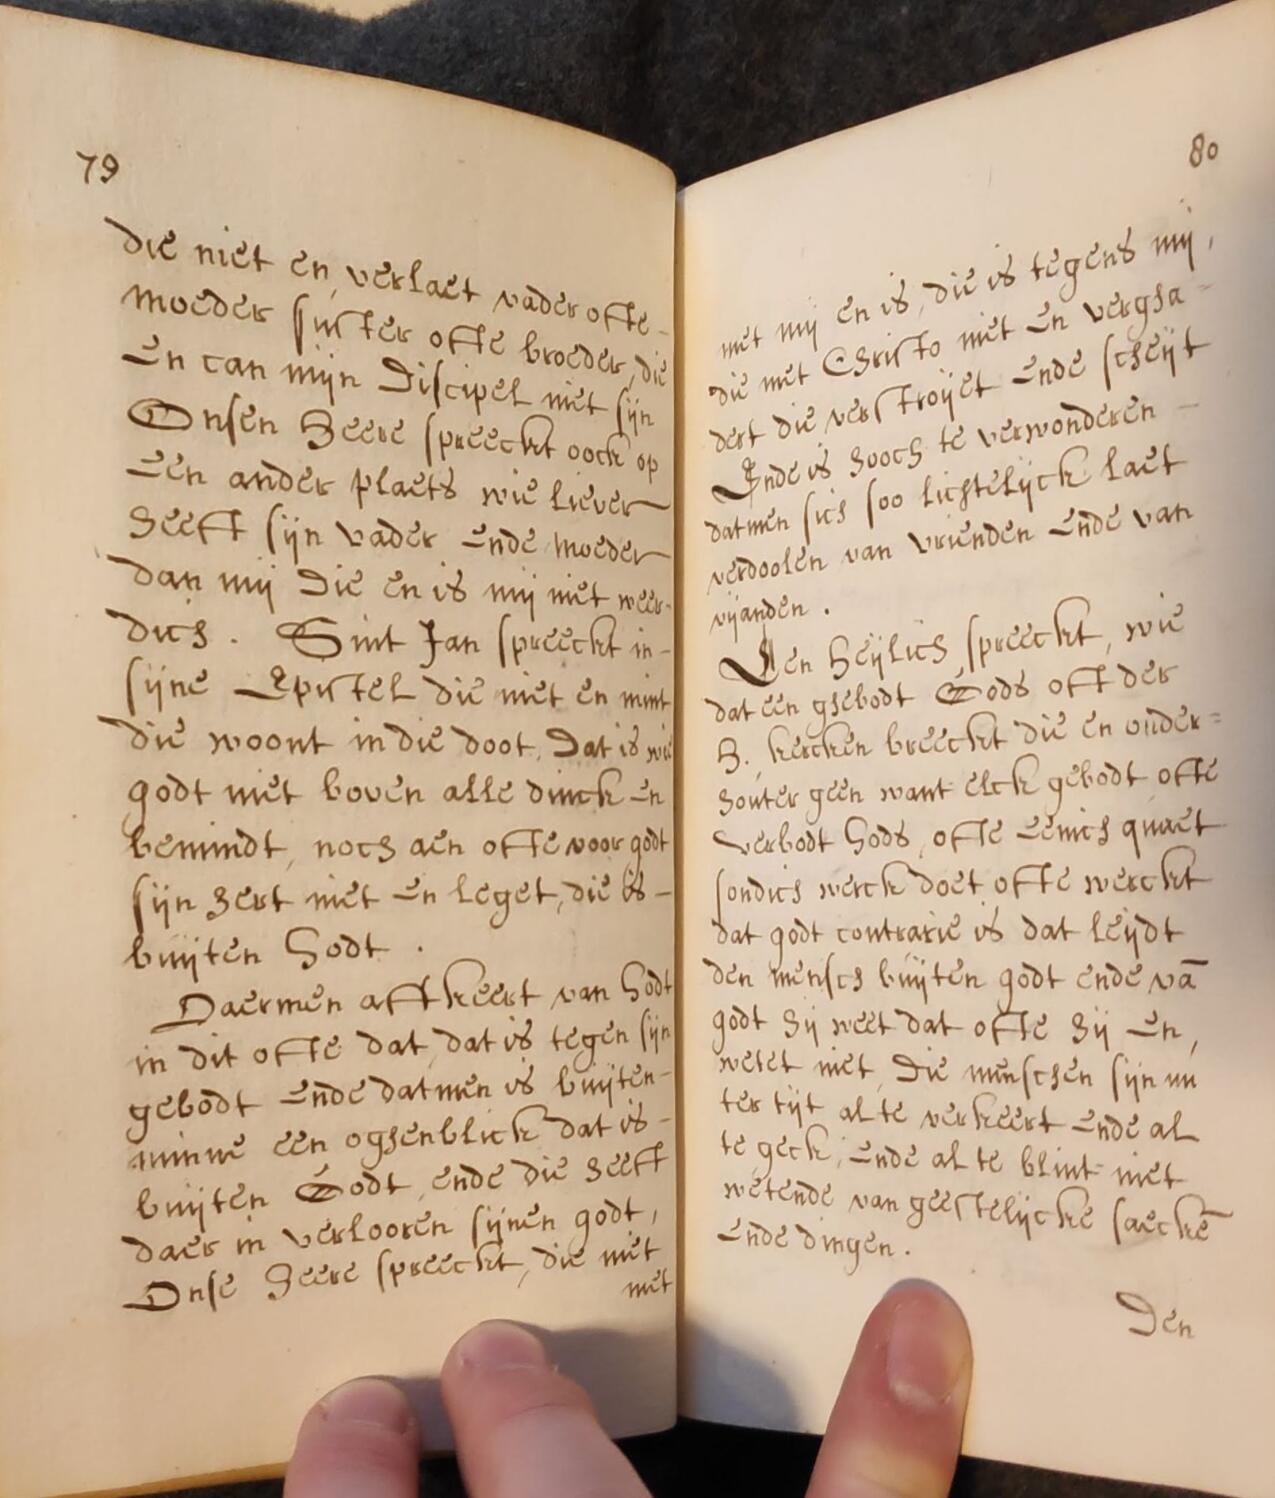 79
die niet en verlaet vader ofte -
moeder suster ofte broeder, die
en can mijn Discipel niet sijn
Onsen Heere spreeckt oock op
een ander plaets wie liever
heeft sijn vader ende moeder
dan mij die en is mij niet weer-
dich. Sint Jan spreeckt in -
sijne Epistel die niet en mint
die woont in die doot, Dat is wie
godt niet boven alle dinck en
bemindt, noch aen ofte voor godt
sijn hert niet en leget, die is -
buijten Godt.
Daermen aftkeert van Godt
in dit ofte dat, dat is tegen sijn
gebodt ende datmen is buijten-
minne een oghenblick dat is -
buijten Godt, ende die heeft
daer in verlooren sijnen godt,
Onse Heere spreeckt, die niet
met
80
met mij en is, die is tegens mij,
die met Christo niet en vergha -
dert die verstroijet ende scheijt
Ende is hooch te verwonderen -
datmen sich soo lichtelijck laet
verdoolen van vrienden ende van
vijanden.
Een Heijlich spreeckt, wie
dat een ghebodt Gods oft der
H. kercken breeckt die en onder=
houter geen want elck gebodt ofte
verbodt Gods, ofte eenich quaet
sondich werck doet ofte werckt
dat godt contrarie is dat leijdt
den mensch buijten godt ende vā
godt hij weet dat ofte hij en,
wetet niet, Die menschen sijn nu
ter tijt al te verkeert ende al
te geck, ende al te blint niet
wetende van geestelijcke saeckē
ende dingen.
Den